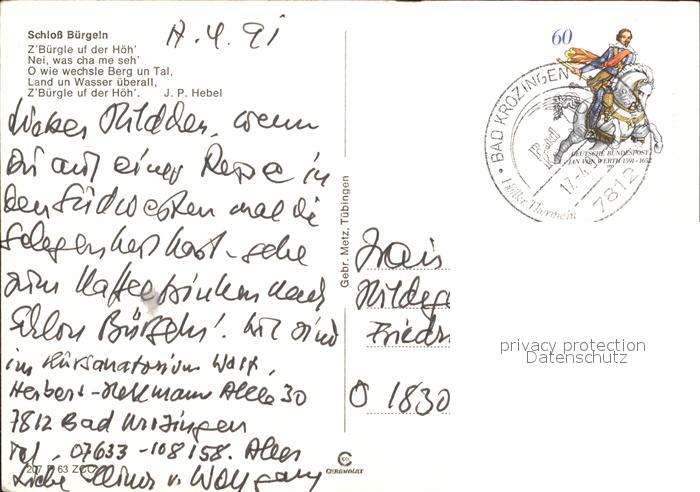 Schloß Bürgeln
Z'Bürgle uf der Höh'
Nei, was cha me seh'
O wie wechsle Berg un Tal,
Land un Wasser überall,
Z'Bürgle uf der Höh'. J. P. Hebel
17.4.91
wenn
Du auf einer Reise in
den Südwesten mal die
Gelegenheit hast - gehe
zum Kaffeetrinken nach
Schloss Bürgeln! Wir sind
im Kursanatorium
Herbert-Hellmann Allee 30
7812 Bad Krozingen
Tel. 07633-108158. Alles
Liebe v. Wolfgang
207 63 ZCC
Gebr. Metz, Tübingen
CEKACOLOR
60
DEUTSCHE BUNDESPOST
JAN VON WERTH 1591-1652
BAD KROZINGEN
Bad
17.-4.
7812
Heißer Thermeln
Frau
Hildeg
Friedr
O 1830
privacy protection
Datenschutz